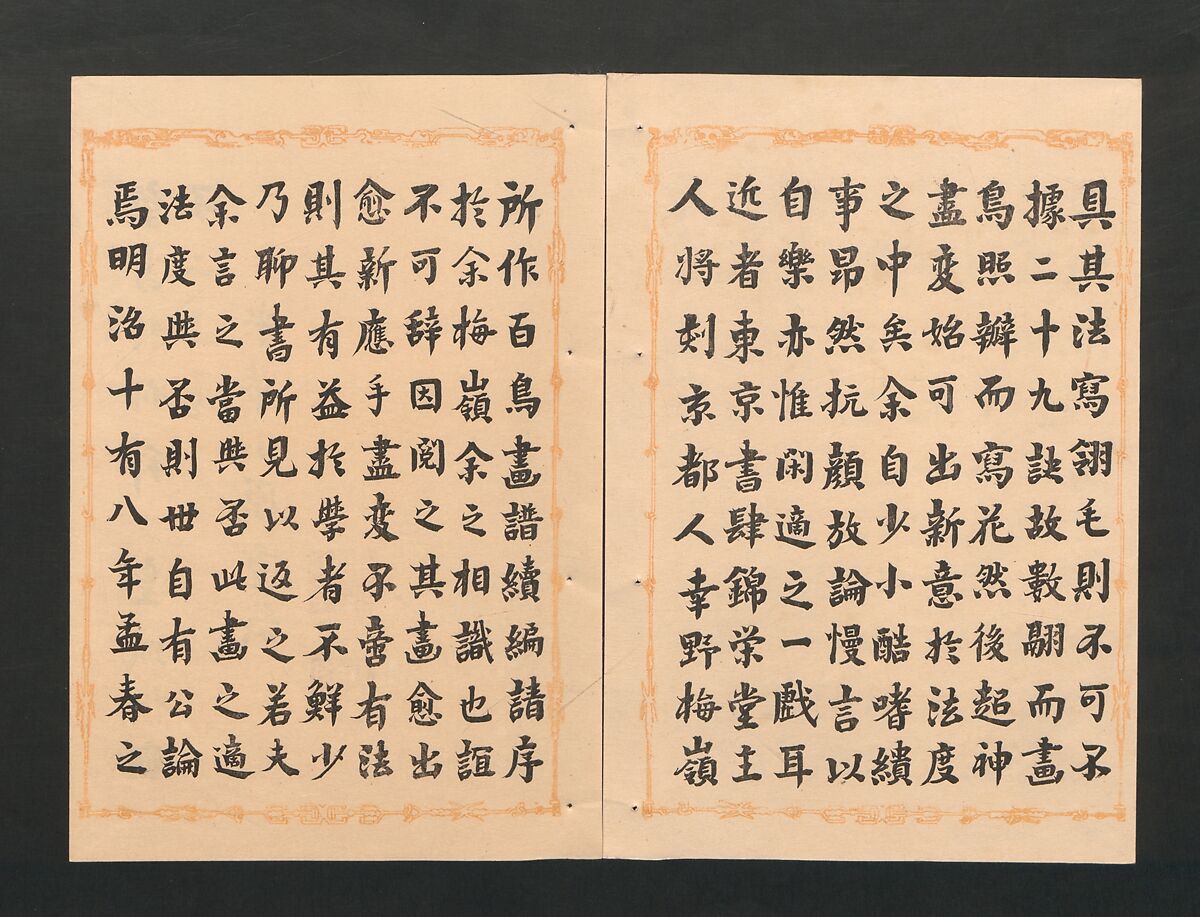 具其法寫翎毛則不可不
據二十九訣故數翮而畫
鳥照瓣而寫花然後超神
盡変始可出新意於法度
之中矣余自少小酷嗜繢
事昂然抗顏放論慢言以
自樂亦惟閑適之一戲耳
近者東京書肆錦栄堂主
人將刻京都人幸野梅嶺
所作百鳥畫譜續編請序
於余梅嶺余之相識也誼
不可辞因閲之其畫愈出
愈新應手盡変不啻有法
則其有益於學者不鮮少
乃聊書所見以返之若夫
余言之當與否此畫之適
法度與否則世自有公論
焉明治十有八年孟春之